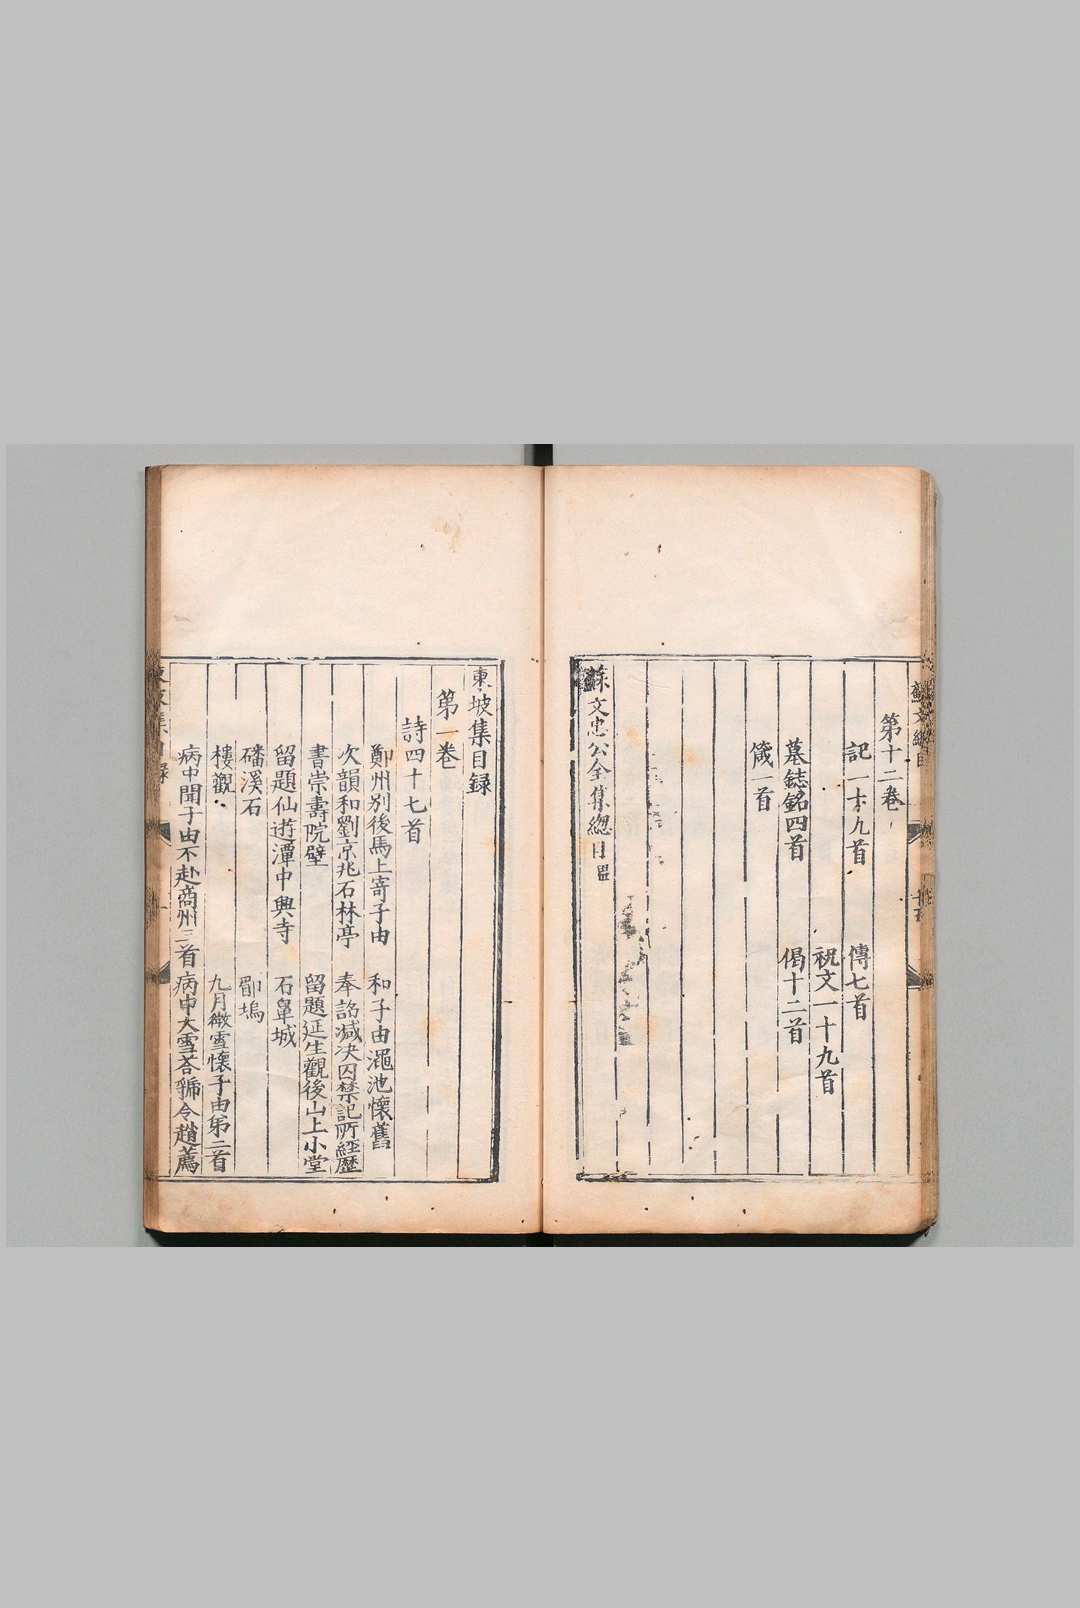 第十二卷
記一十九首　傳七首
祝文一十九首
墓誌銘四首　偈十二首
箴一首
蘇文忠公全集總目
東坡集目録
第一卷
詩四十七首
鄭州別後馬上寄子由　和子由澠池懷舊
次韻和劉京兆石林亭　奉詔減决囚禁記所經歷
書崇壽院壁　留題延生觀後山上小堂
留題仙遊潭中興寺　石鼻城
磻溪石　郿塢
樓觀　九月微雪懷子由弟二首
病中聞子由不赴商州三首　病中大雪荅虢令趙薦